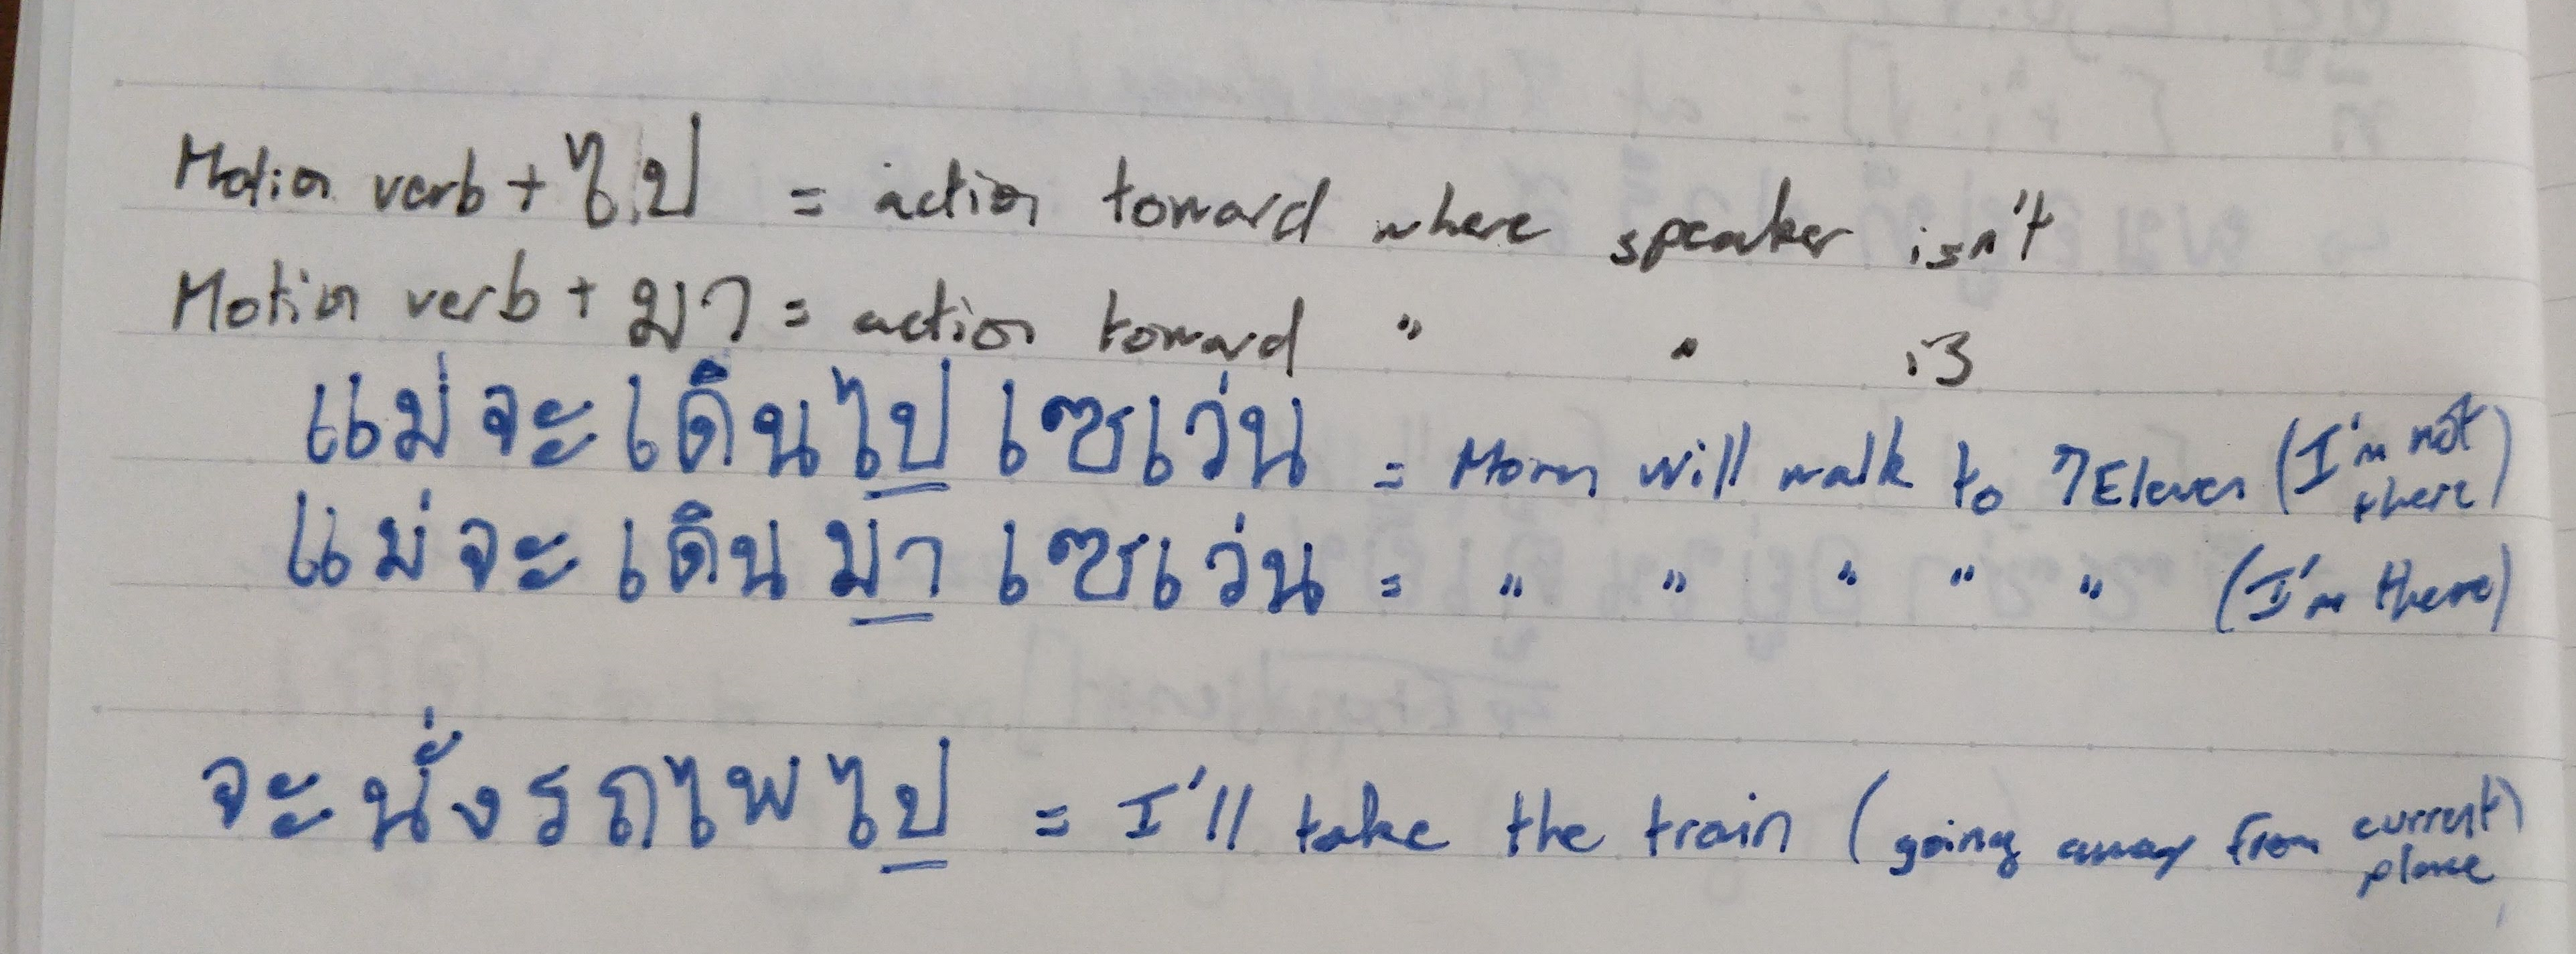 Motion verb + ไป = action toward where speaker isn't
Motion verb + มา = action toward " " is
แม่จะเดินไปเซเว่น = Mom will walk to 7Eleven (I'm not there)
แม่จะเดินมาเซเว่น = " " " " " (I'm there)
จะนั่งรถไฟไป = I'll take the train (going away from current place)